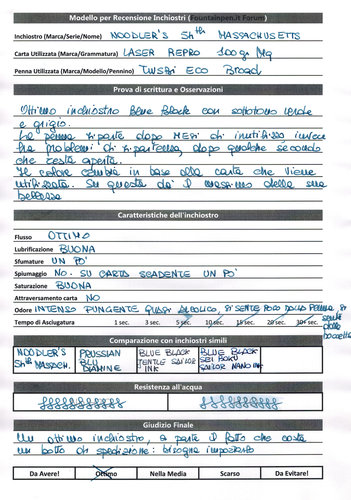 Modello per Recensione Inchiostri (Fountainpen.it Forum)
Inchiostro (Marca/Serie/Nome) NOODLER'S 54th MASSACHUSETTS
Carta Utilizzata (Marca/Grammatura) LASER REPRO 100gr/Mq
Penna Utilizzata (Marca/Modello/Pennino) TWSBI ECO Broad
Prova di scrittura e Osservazioni
Ottimo inchiostro Blue Black con sottotono verde
e grigio.
La penna riparte dopo MESI di inutilizzo, invece
ha problemi di ripartenza, dopo qualche secondo
che resta aperta.
Il colore cambia in base alla carta che viene
utilizzata. Su questa dà il massimo della sua
bellezza
Caratteristiche dell'inchiostro
Flusso OTTIMO
Lubrificazione BUONA
Sfumature UN PO'
Spiumaggio NO. SU CARTA SCADENTE UN PO'
Saturazione BUONA
Attraversamento carta NO
Odore INTENSO PUNGENTE QUASI ALCOLICO, SI SENTE POCO DALLA PENNA, SI
sente
dalla
boccetta
Tempo di Asciugatura 1 sec. 3 sec. 5 sec. 10 sec. 15 sec. 20 sec. 30+ sec.
Comparazione con inchiostri simili
NOODLER'S PRUSSIAN BLUE BLACK BLUE BLACK
54th BLU GENTLE SAILOR SEI BOKU
MASSACH. DIAMINE INK SAILOR NANO INK
Resistenza all'acqua
Giudizio Finale
Un ottimo inchiostro, a parte il fatto che costa
un botto di spedizione: bisogna importarlo
Da Avere! Ottimo Nella Media Scarso Da Evitare!